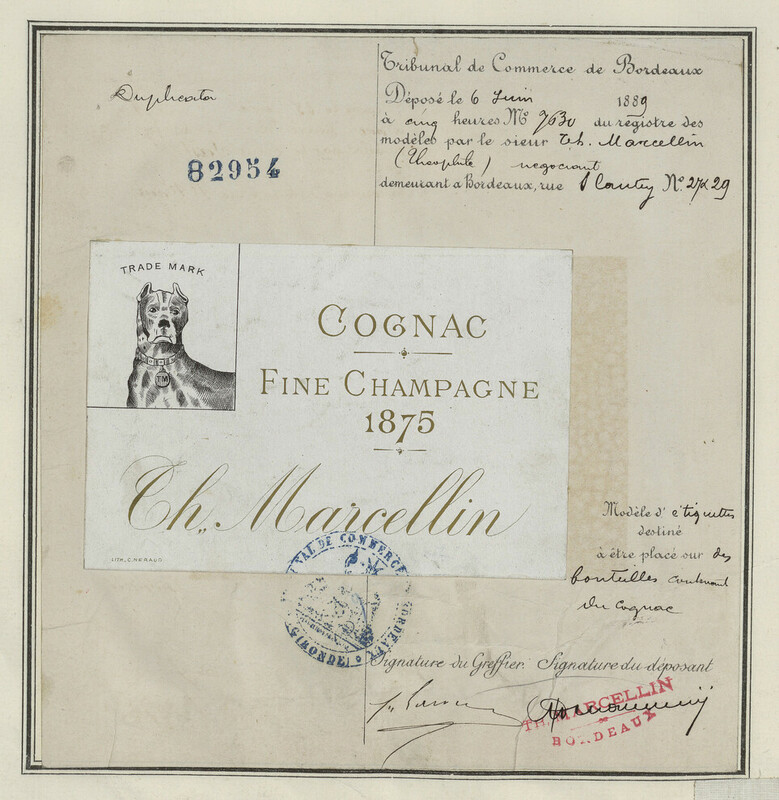 Duplicata
82954
Tribunal de Commerce de Bordeaux
Déposé le 6 Juin 1889
à cinq heures No. 7630 du registre des
modèles par le sieur Th. Marcellin
(Théophile) negociant
demeurant a Bordeaux, rue Plantey No. 27 & 29
TRADE MARK
TM
COGNAC
FINE CHAMPAGNE
1875
Th. Marcellin
LITH. C. HÉRAUD
TRIBUNAL DE COMMERCE BORDEAUX
(GIRONDE)
Modèle d'étiquettes
destiné
à être placé sur des
bouteilles contenant
du cognac
Signature du Greffier. Signature du déposant
TH. MARCELLIN
BORDEAUX